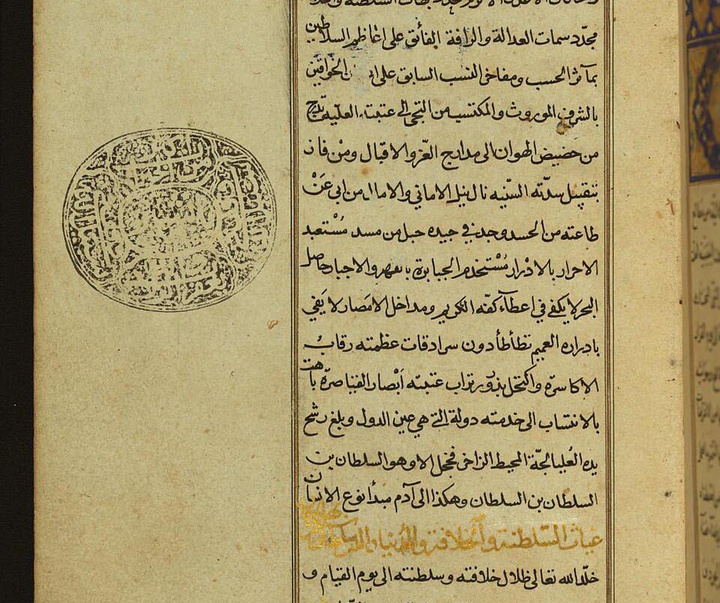 مجدد سمات العدالة والرافة الفائق على اعاظم السلاطين
بمآثر الحسب ومفاخر النسب السابق على الخواقين
بالشرف الموروث والمكتسب من التجى الى عتبته العلية
من حضيض الهوان الى مدارج العز والاقبال ومن فاز
بتقبيل سدته السنية نال نيل الامانى والامال من ابى عَنْ
طاعته من الحسد وجد فى جيده حبل من مسد مُسْتعبد
الاحرار بالادْرار مُسْتخدم الجبابرة بالقهر والاجبار حاصل
البحر لا يكفى فى اعطاء كفه الكريم ومداخل الامصار لا يَفى
بادراره العميم تطأطأ دون سرادقات عظمته رقاب
الاكاسرة واكتحل بذرور تراب عتبته اَبْصار القياصرة باهت
بالانتساب الى خدمته دولة التى هى عين الدول وبلغ رشح
يده العُليا لجّة المحيط الزاخر فخجل الا وهو السلطان بن
السلطان بن السلطان وهكذا الى آدم مبدأ نوع الانسان
غياث السّلطنة والخلافة والدنيا
خلّد الله تعالى ظلال خلافته وسلطنته الى يوم القيام و